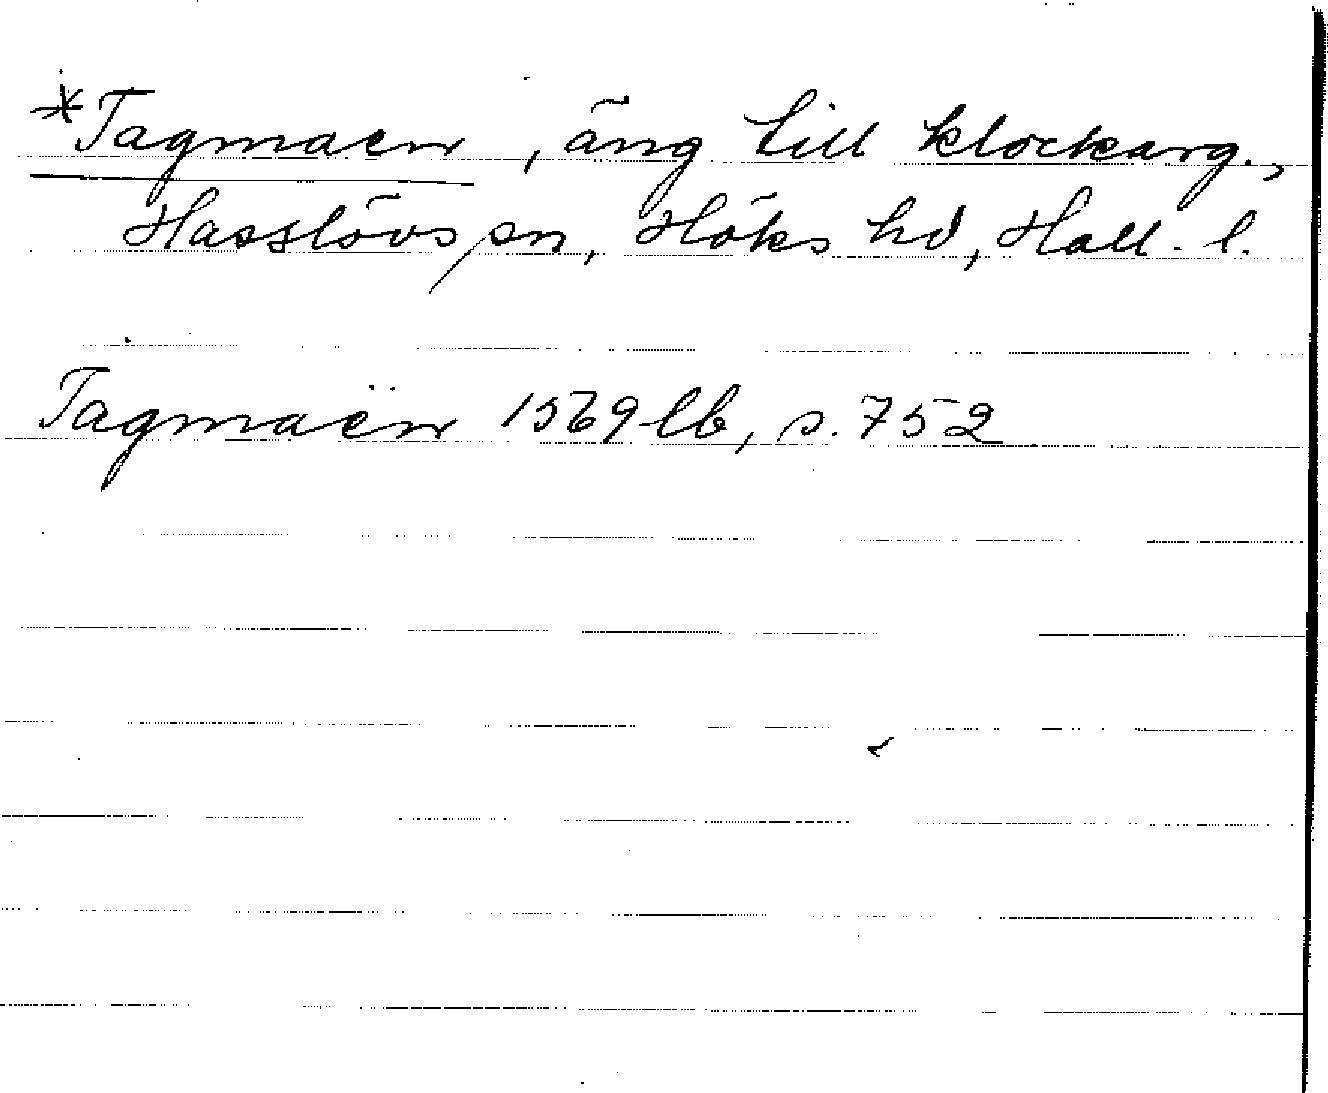 *Tagmaen, äng till klockarg.,
Hasslövs sn, Höks hd, Hall. l.
Tagmaën 1569 lb, s. 752